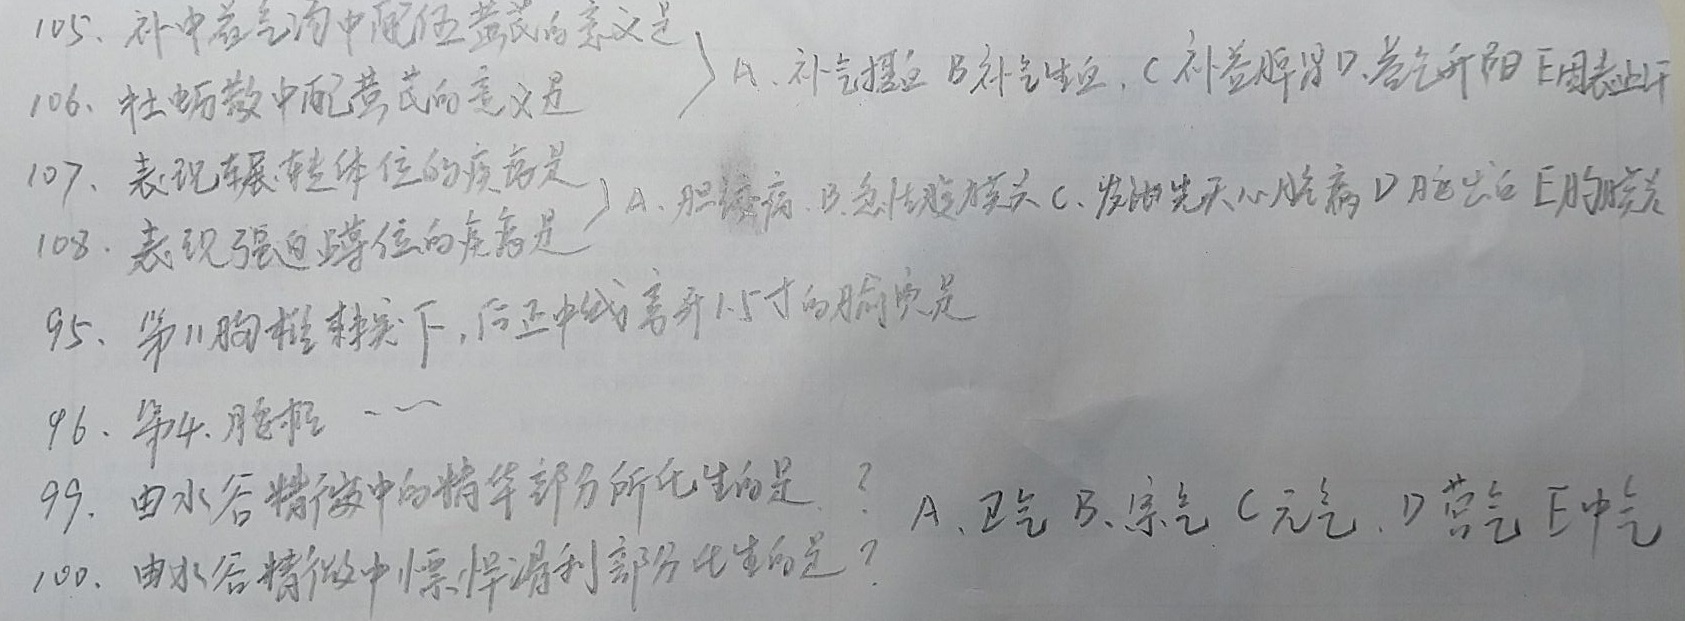 105、补中益气汤中配伍黄芪的意义是
106、牡蛎散中配黄芪的意义是
A、补气摄血 B补气生血、C 补益脾胃 D、益气升阳 E固表止汗
107、表现辗转体位的疾病是
108、表现强迫蹲位的疾病是
A、胆绞痛、B.急性腹膜炎 C、发绀先天心脏病 D 脑出血 E胸膜炎
95、第11胸椎棘突下,后正中线旁开1.5寸的腧穴是
96、第4、腰椎 ----
99、由水谷精微中的精华部分所化生的是?
A、卫气 B、宗气 C元气、D营气 E中气
100、由水谷精微中慓悍滑利部分化生的是?